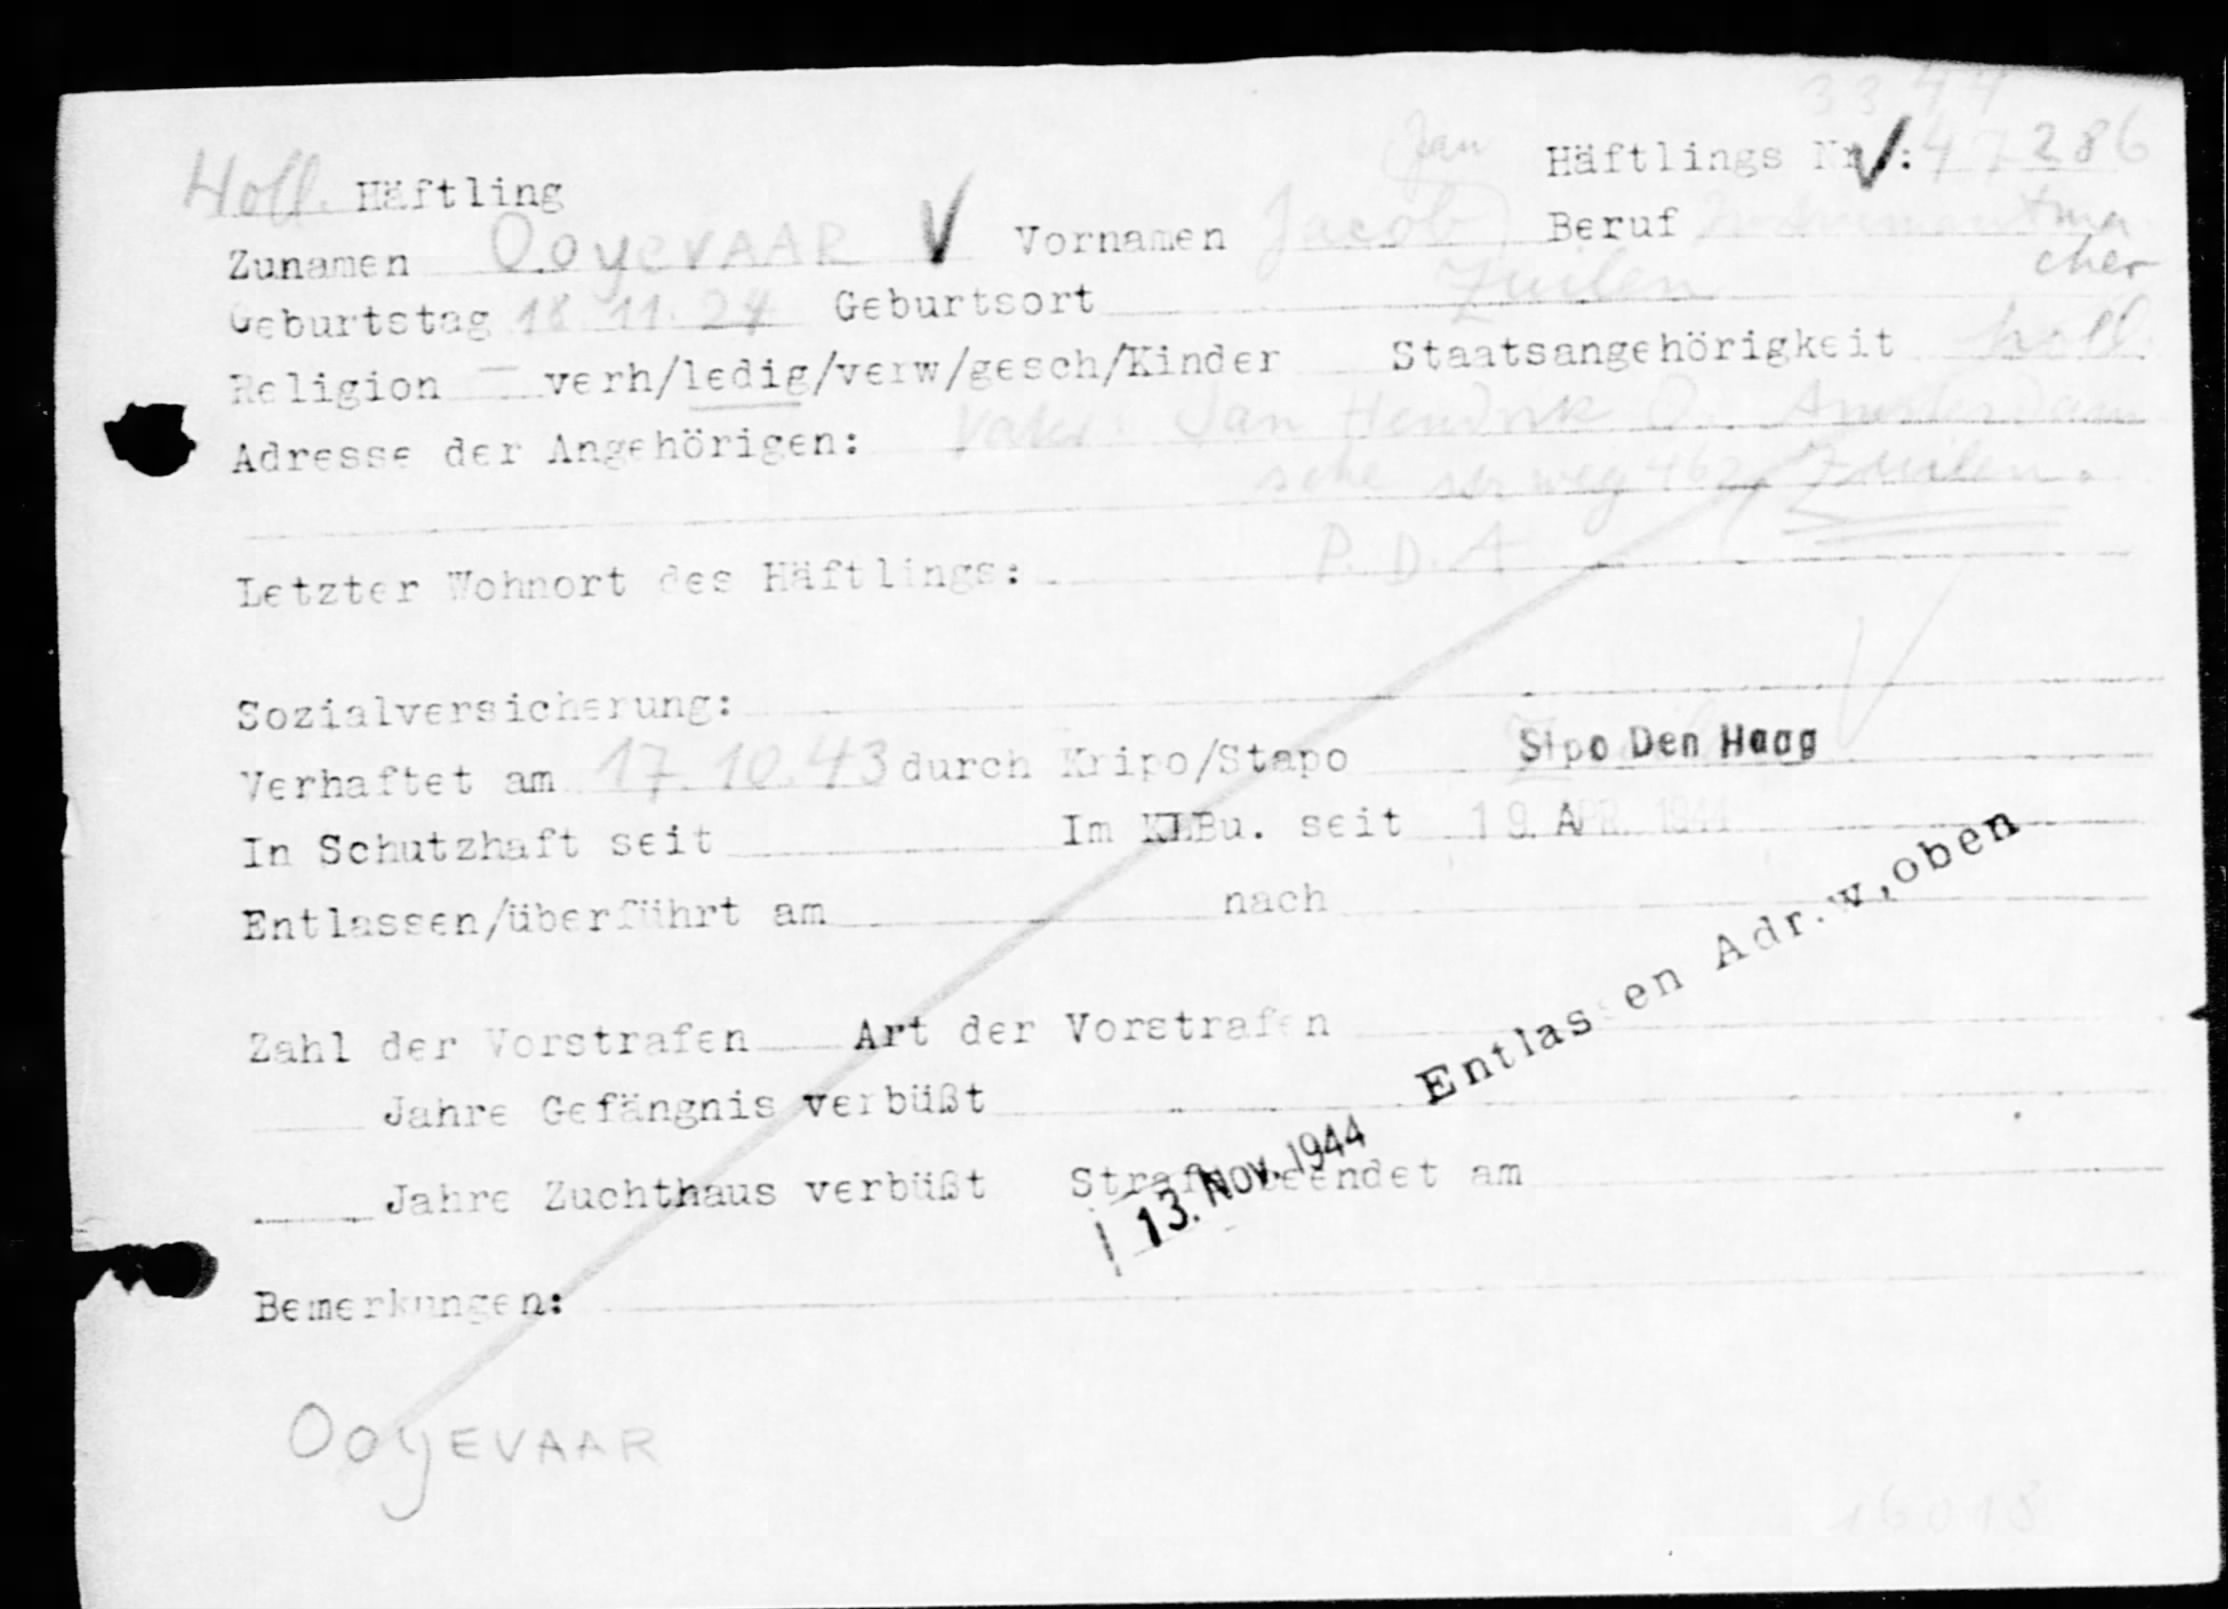 33 44
Holl. Häftling Jan Häftlings Nr.: 47286
Zunamen OoyeVAAR V Vornamen Jacob Beruf Instrumentma
cher
Geburtstag 18.11.24 Geburtsort Zuilen
Religion – verh/ledig/verw/gesch/Kinder Staatsangehörigkeit holl.
Adresse der Angehörigen: Vater: Jan Hendrik O. Amsterdam
sche weg 462, Zuilen.
Letzter Wohnort des Häftlings: P. D. A
Sozialversicherung:
Verhaftet am 17.10.43 durch Kripo/Stapo Sipo Den Haag
In Schutzhaft seit Im KLBu. seit 19. APR. 1944
Entlassen/überführt am nach
Entlassen Adr.w,oben
Zahl der Vorstrafen Art der Vorstrafen
Jahre Gefängnis verbüßt
Jahre Zuchthaus verbüßt Strafe beendet am
13. Nov. 1944
Bemerkungen:
OoyEVAAR
16018